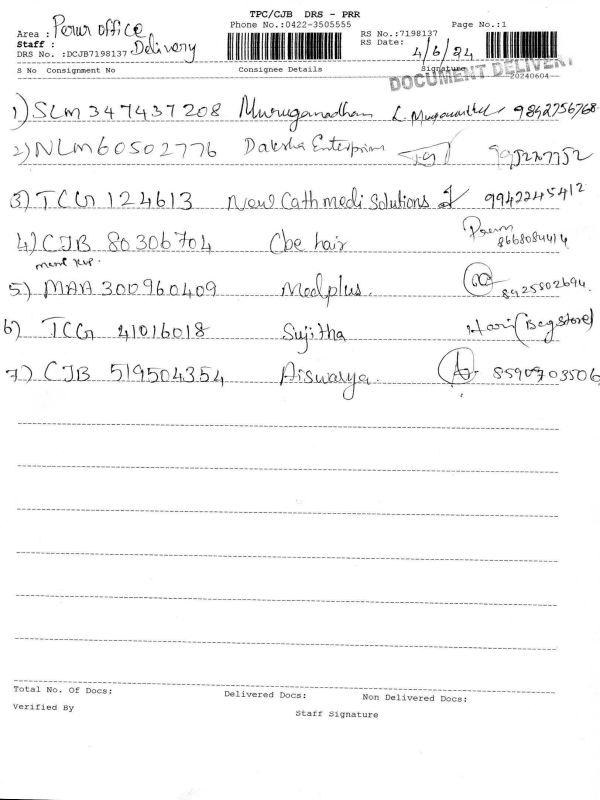 TPC/CJB DRS - PRR
Area : Perur office
Phone No.:0422-3505555
RS No.:7198137
Page No.:1
Staff : Delivery
RS Date: 4/6/24
DRS No. :DCJB7198137
20240604
S No Consignment No Consignee Details Signature
DOCUMENT DELIVERY
1) SLM 347437208 Muruganadham 9842756768
2) NLM60502776 Daksha Enterprises
3) TCG 124613 New Cathmedi Solutions 9942245412
4) CJB 80306704 Cbe hair Prem 8668084414
5) MAA 300960409 Medplus. 8925802694
6) TCG 41016018 Sujitha Hari (Bag store)
7) CJB 519504354 Aiswarya. 8590703506
Total No. Of Docs: Delivered Docs: Non Delivered Docs:
Verified By Staff Signature